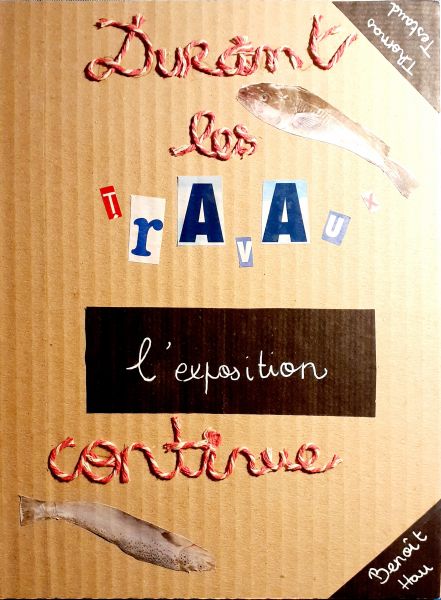 Thomas
Testaud
Durant
les
TrAvAux
l'exposition
continue
Benoît
Hau